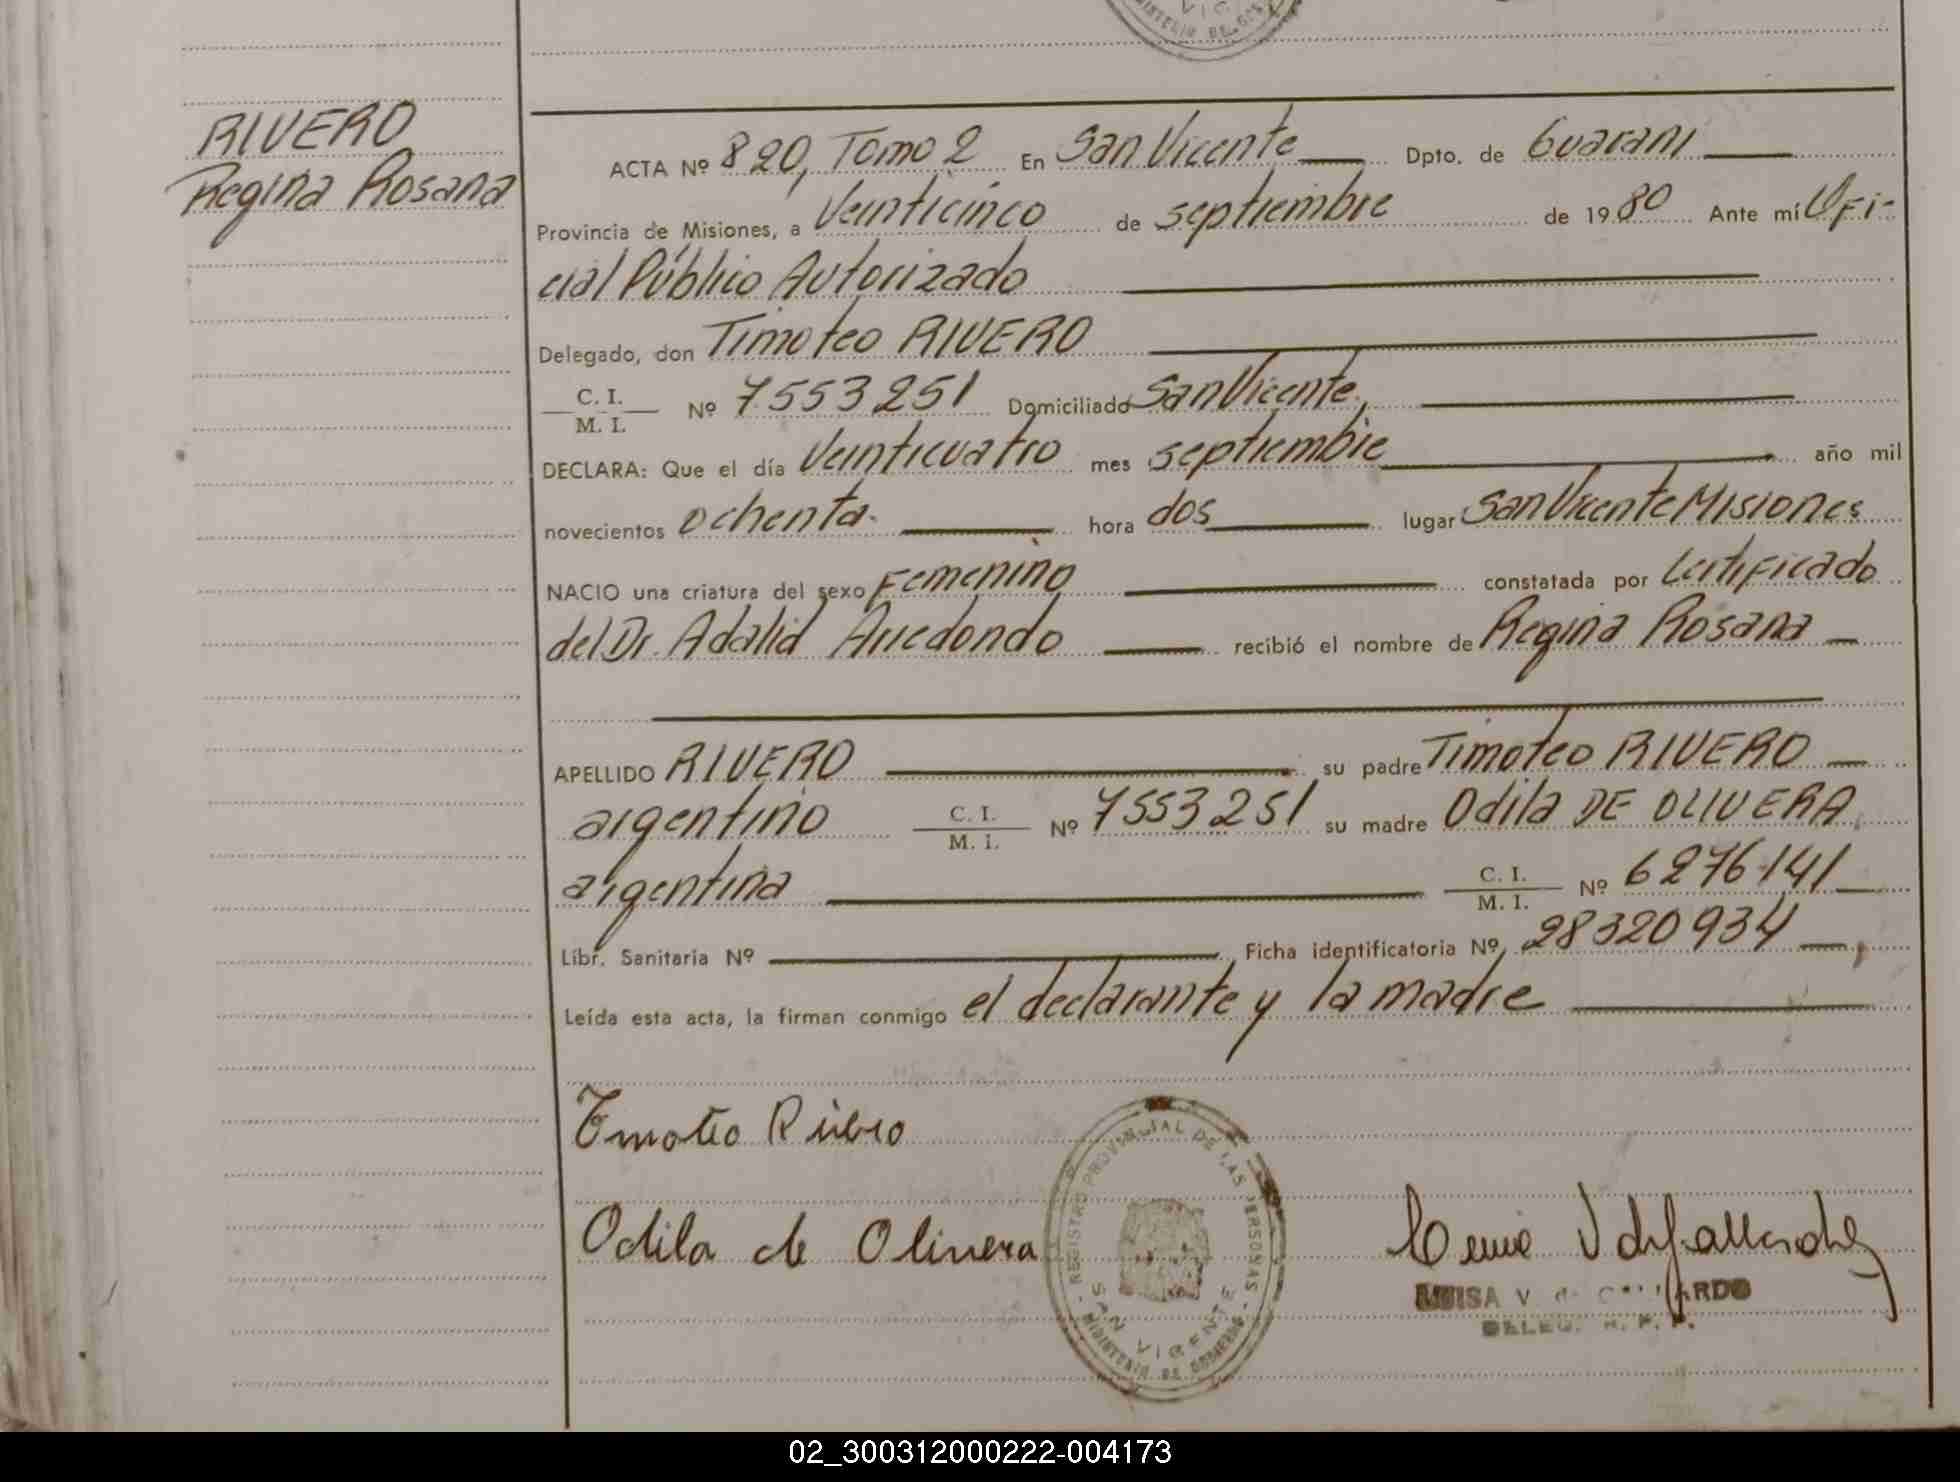 RIVERO
Regina Rosana
ACTA Nº 820, Tomo 2 En San Vicente Dpto. de Guarani
Provincia de Misiones, a Veinticinco de septiembre de 1980 Ante mí Ofi-
cial Público Autorizado
Delegado, don Timoteo RIVERO
C. I.
M. I. Nº 7553251 Domiciliado San Vicente,
DECLARA: Que el día Veinticuatro mes septiembre año mil
novecientos ochenta. hora dos lugar San Vicente Misiones
NACIO una criatura del sexo Femenino constatada por Certificado
del Dr. Adalid Arredondo recibió el nombre de Regina Rosana
APELLIDO RIVERO su padre Timoteo RIVERO
argentino C. I.
M. I. Nº 7553251 su madre Odila DE OLIVERA,
argentina C. I.
M. I. Nº 6276141
Libr. Sanitaria Nº Ficha identificatoria Nº 28320934
Leída esta acta, la firman conmigo el declarante y la madre
Timoteo Rivero
Odila de Olivera
REGISTRO PROVINCIAL DE LAS PERSONAS
SAN VICENTE
MINISTERIO DE GOBIERNO
LUISA V. de GALLARDO
DELEG. R. P. P.
02_300312000222-004173